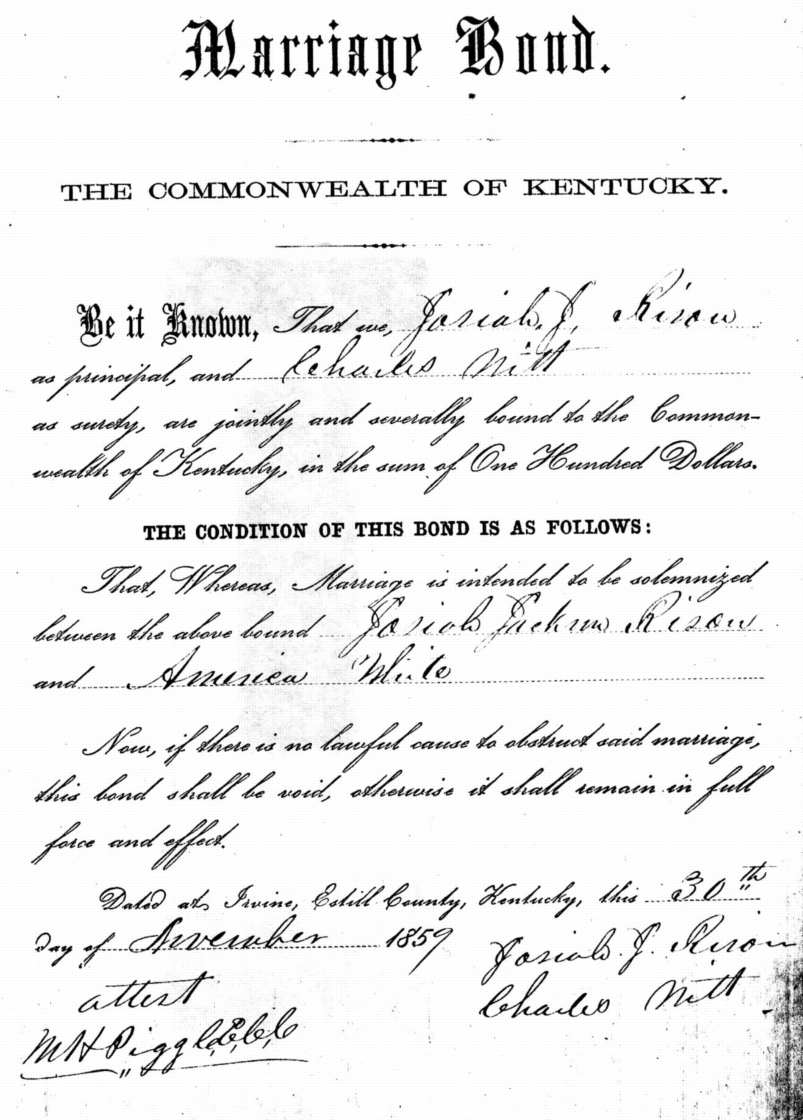 Marriage Bond.
THE COMMONWEALTH OF KENTUCKY.
Be it Known, That we, Josiah. J. Rison
as principal, and Charles Nitt
as surety, are jointly and severally bound to the Common-
wealth of Kentucky, in the sum of One Hundred Dollars.
THE CONDITION OF THIS BOND IS AS FOLLOWS:
That, Whereas, Marriage is intended to be solemnized
between the above bound Josiah Jackson Rison
and America White
Now, if there is no lawful cause to obstruct said marriage,
this bond shall be void, otherwise it shall remain in full
force and effect.
Dated at Irvine, Estill County, Kentucky, this 30th
day of November 1859
Josiah. J. Rison
attest Charles Nitt
M H